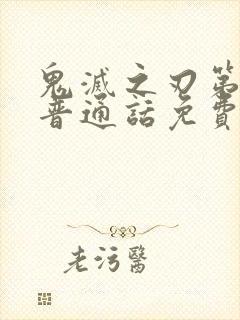 鬼滅之刃第
普通話免費
老污醫